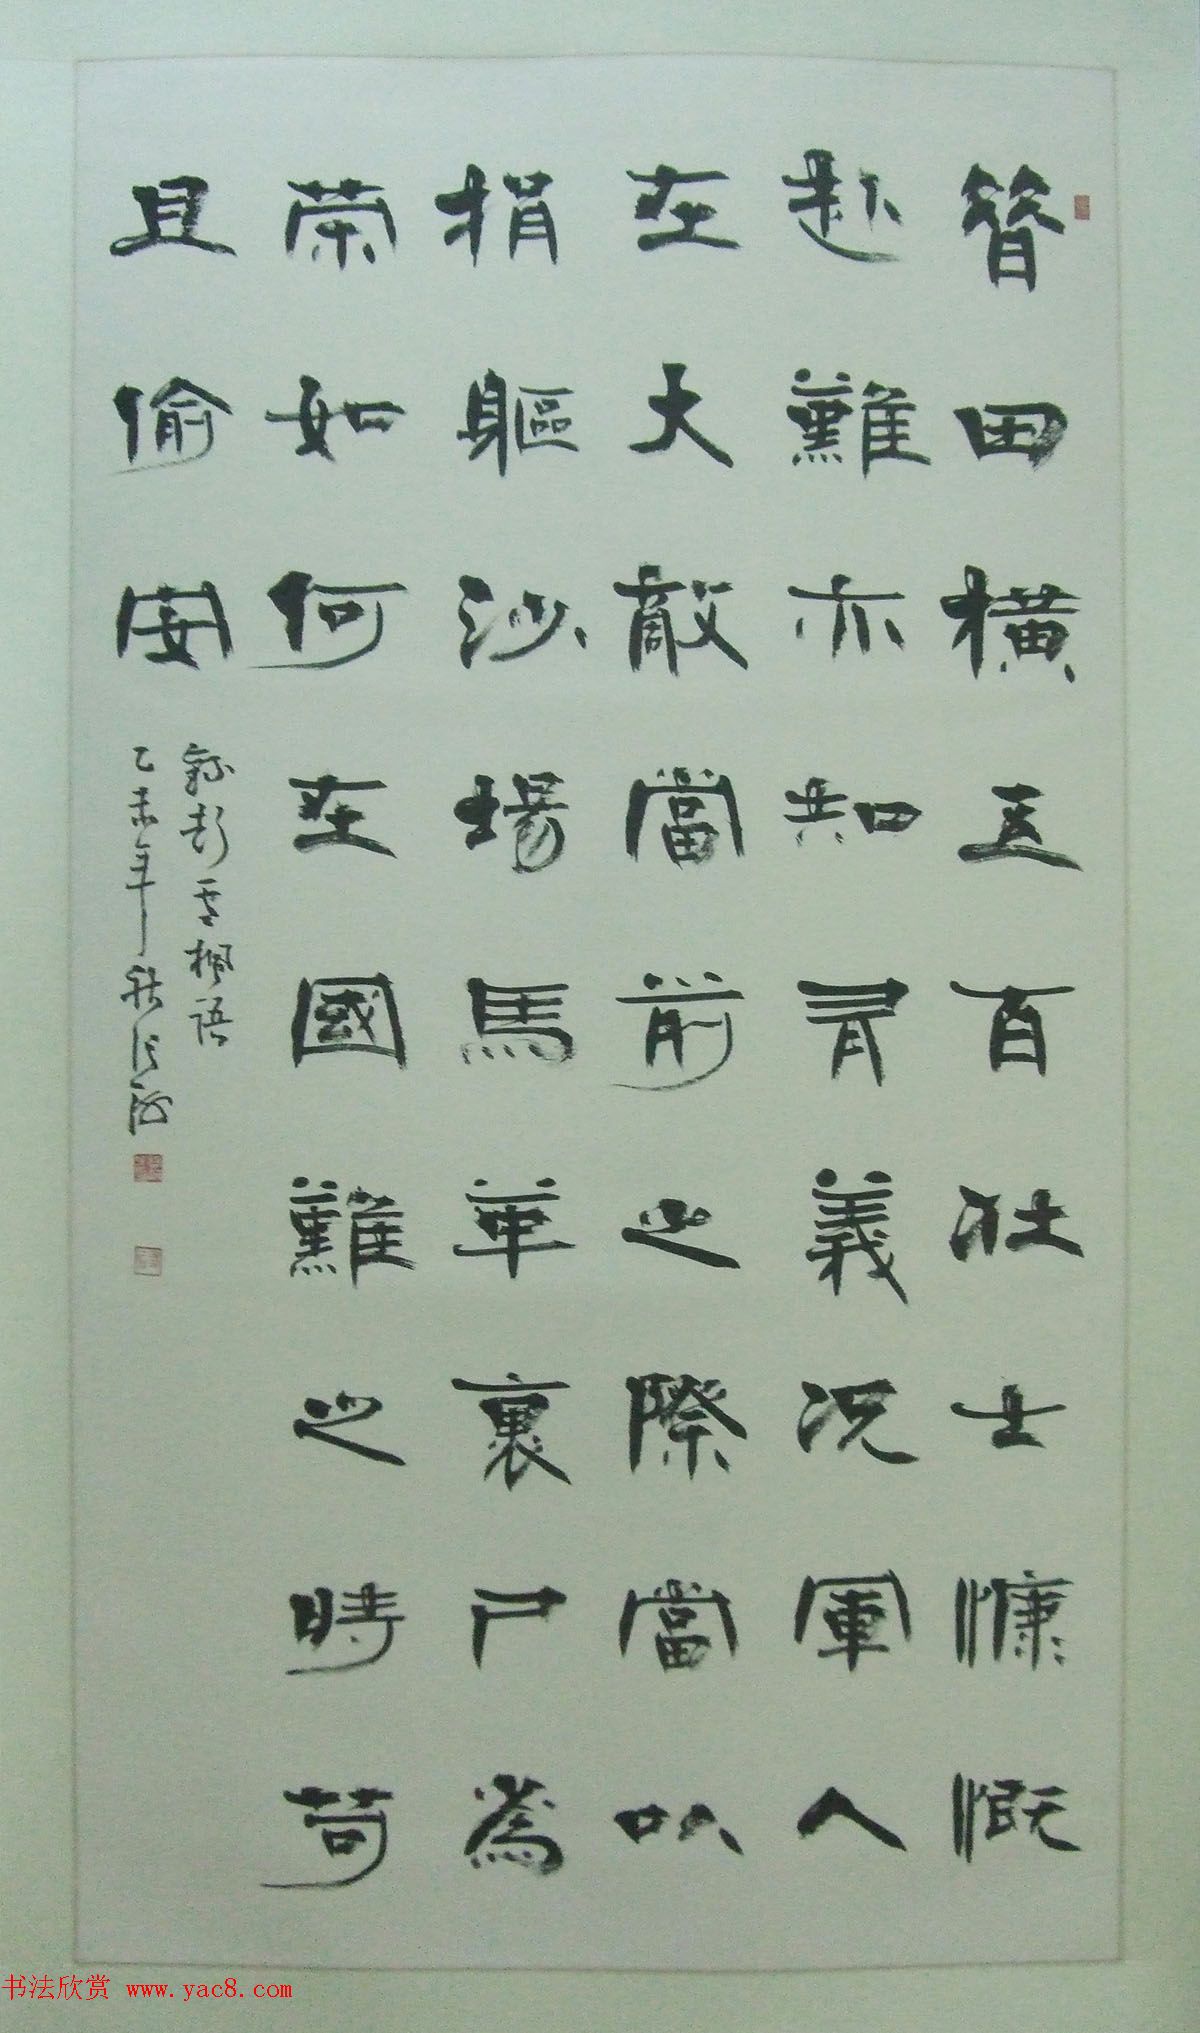 昔田橫五百壯士慷慨
赴難亦知有義況軍人
在大敵當前之際當以
捐軀沙場馬革裹尸為
榮如何在國難之時苟
且偷安
錄彭雪楓語
乙未年秋
书法欣赏 www.yac8.com